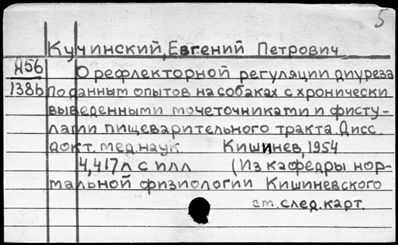 5
Кучинский, Евгений Петрович
А56
1386
О рефлекторной регуляции диуреза
по данным опытов на собаках с хронически
выведенными мочеточниками и фисту-
лами пищеварительного тракта. Дисс.
докт. мед. наук. Кишинев, 1954
4,417л с илл (Из кафедры нор-
мальной физиологии Кишиневского
см. след. карт.